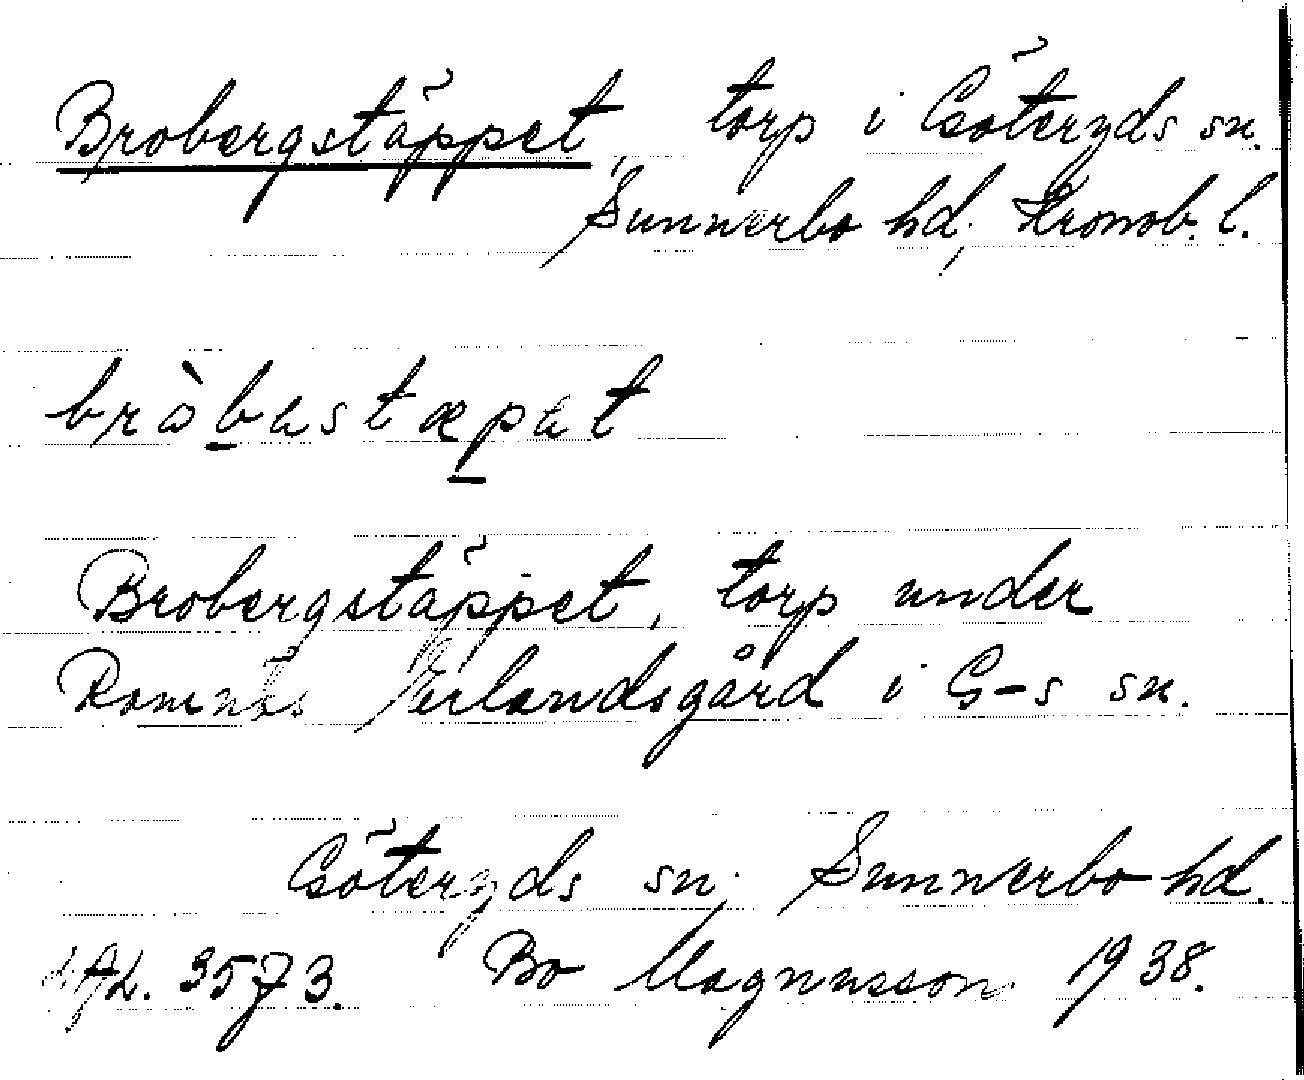 Brobergstäppet, torp i Göteryds sn.
Sunnerbo hd; Kronob. l.
bròbastæpat
Brobergstäppet, torp under
Ramnäs Erlandsgård i G-s sn.
Göteryds sn; Sunnerbo hd.
3573. Bo Magnusson 1938.